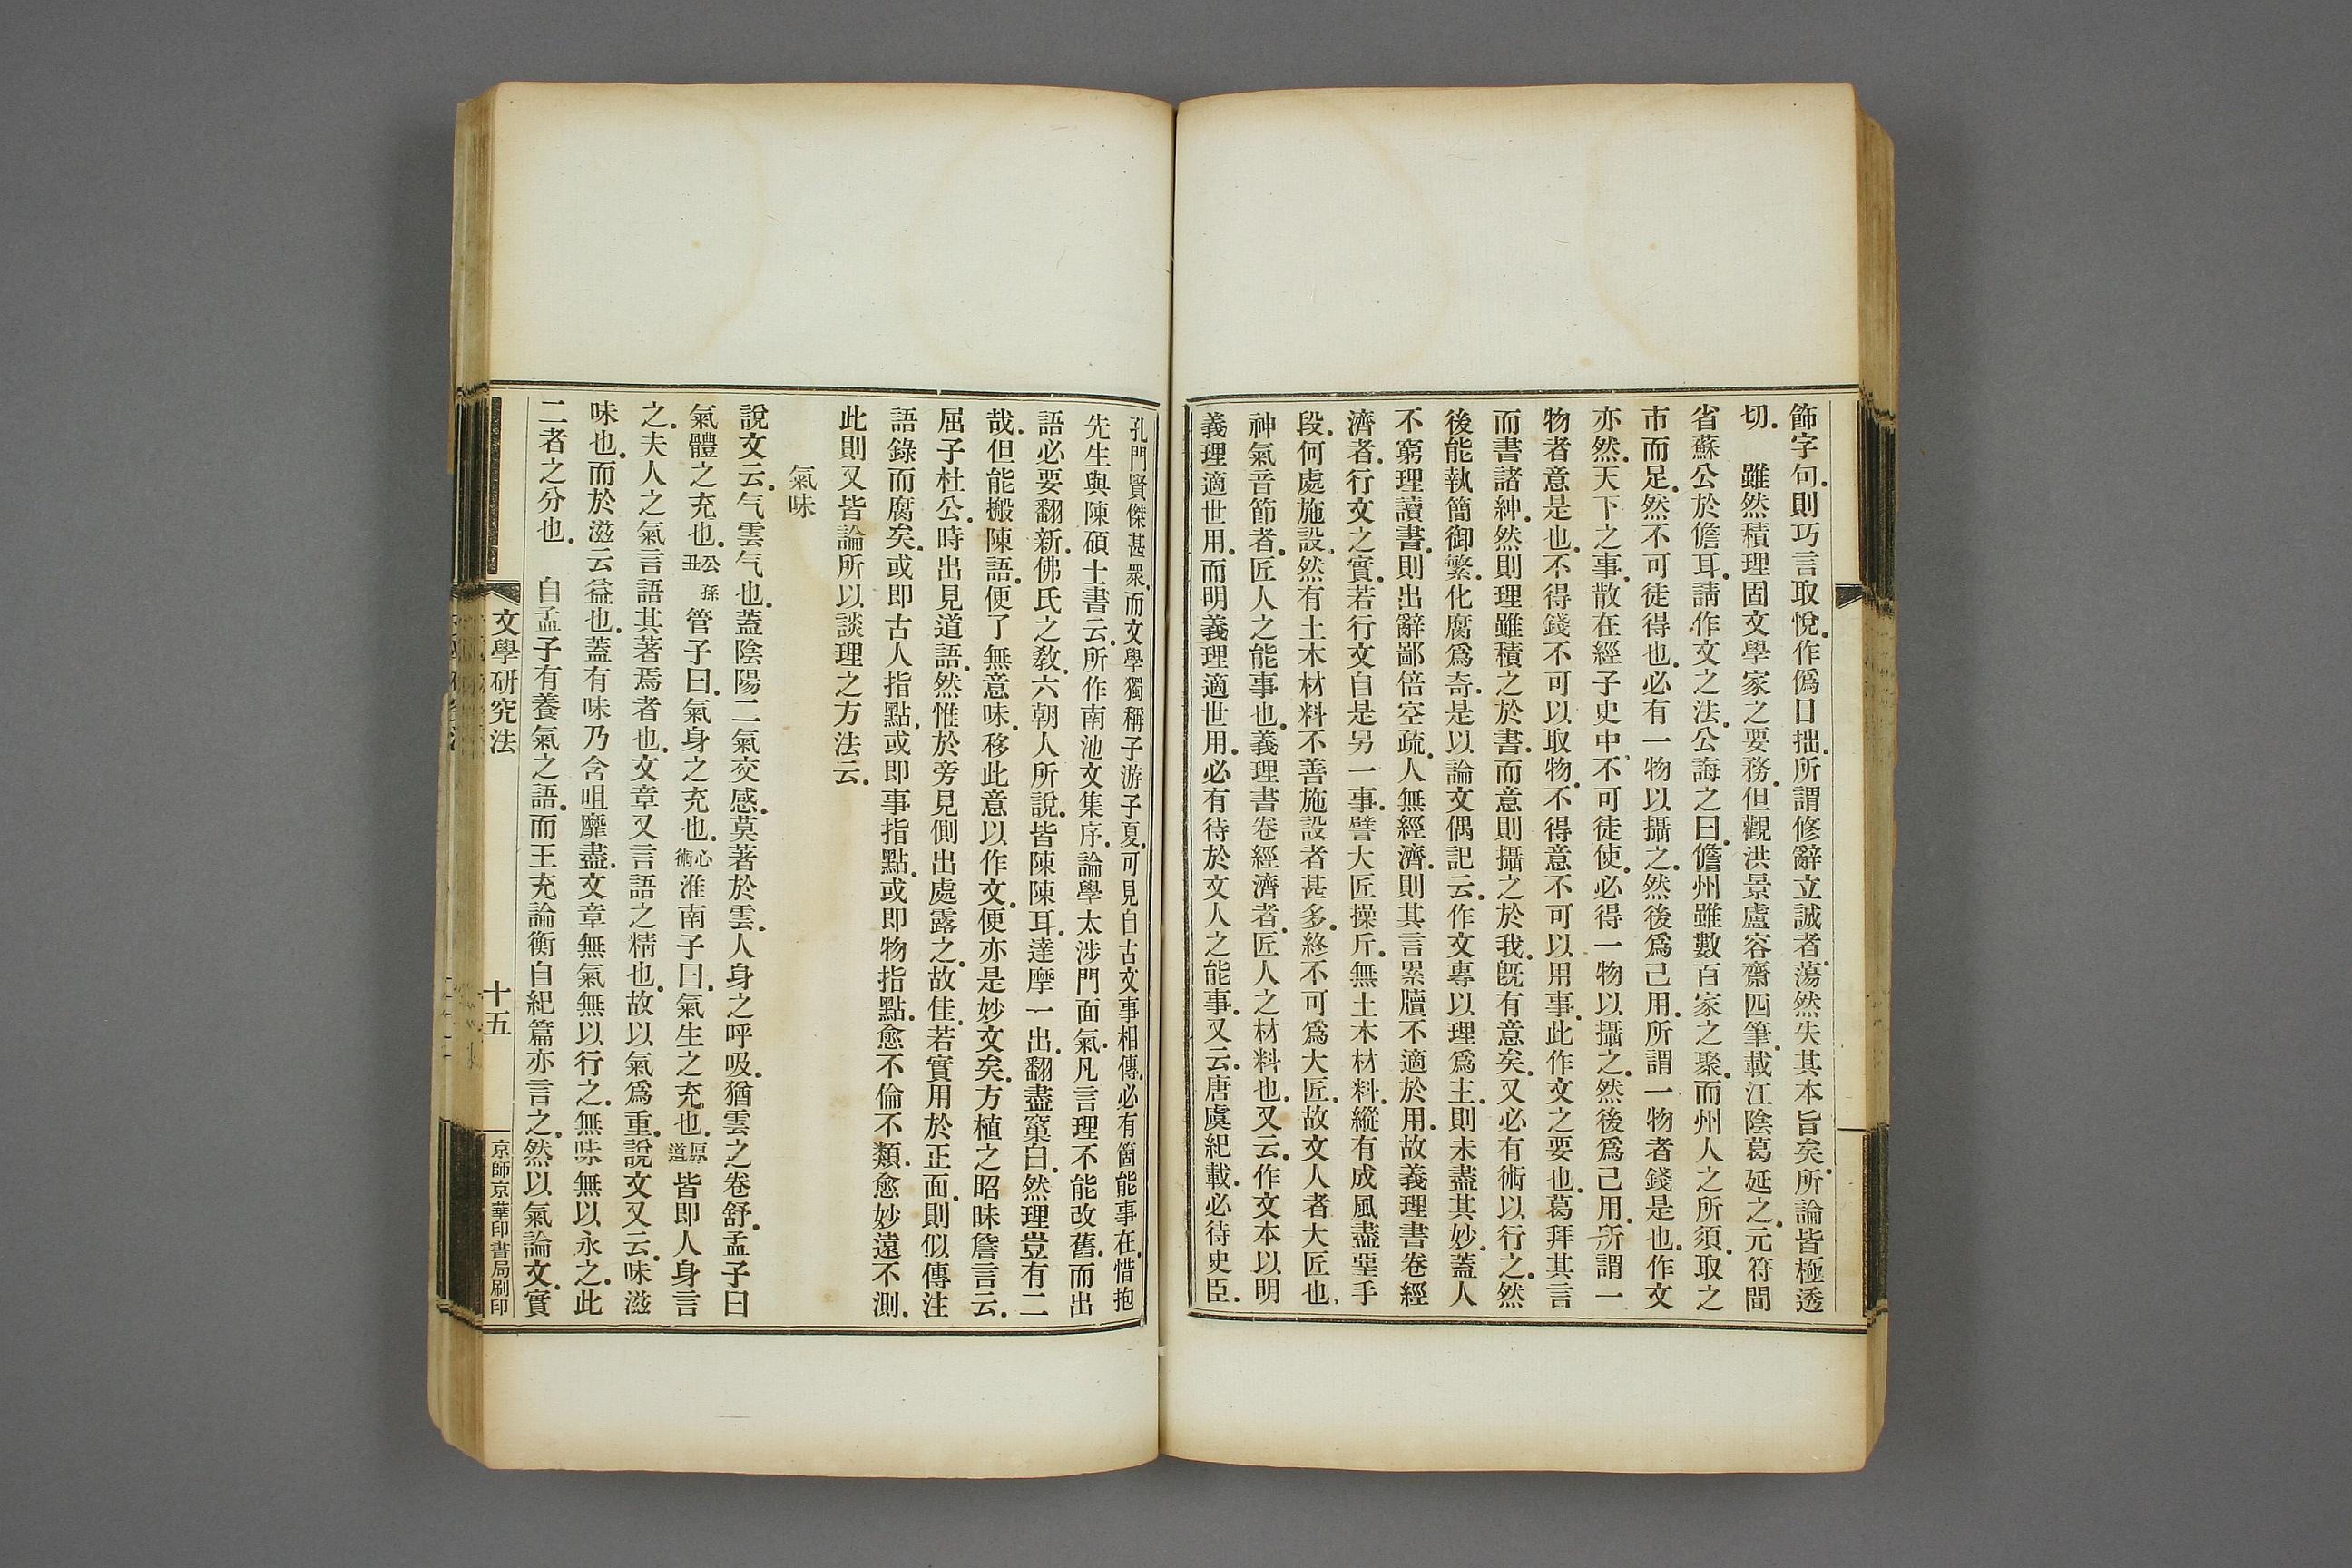 飾字句則巧言取悅作僞日拙所謂修辭立誠者蕩然失其本旨矣所論皆極透
切　雖然積理固文學家之要務但觀洪景盧容齋四筆載江陰葛延之元符間
省蘇公於儋耳請作文之法公誨之曰儋州雖數百家之聚而州人之所須取之
市而足然不可徒得也必有一物以攝之然後爲己用所謂一物者錢是也作文
亦然天下之事散在經子史中不可徒使必得一物以攝之然後爲己用所謂一
物者意是也不得錢不可以取物不得意不可以用事此作文之要也葛拜其言
而書諸紳然則理雖積之於書而意則攝之於我既有意矣又必有術以行之然
後能執簡御繁化腐爲奇是以論文偶記云作文專以理爲主則未盡其妙蓋人
不窮理讀書則出辭鄙倍空疏人無經濟則其言累牘不適於用故義理書卷經
濟者行文之實若行文自是另一事譬大匠操斤無土木材料縱有成風盡堊手
段何處施設然有土木材料不善施設者甚多終不可爲大匠故文人者大匠也
神氣音節者匠人之能事也義理書卷經濟者匠人之材料也又云作文本以明
義理適世用而明義理適世用必有待於文人之能事又云唐虞紀載必待史臣
孔門賢傑甚眾而文學獨稱子游子夏可見自古文事相傳必有箇能事在惜抱
先生與陳碩士書云所作南池文集序論學太涉門面氣凡言理不能改舊而出
語必要翻新佛氏之敎六朝人所說皆陳陳耳達摩一出翻盡窠臼然理豈有二
哉但能搬陳語便了無意味移此意以作文便亦是妙文矣方植之昭昧詹言云
屈子杜公時出見道語然惟於旁見側出處露之故佳若實用於正面則似傳注
語錄而腐矣或即古人指點或即事指點或即物指點愈不倫不類愈妙遠不測
此則又皆論所以談理之方法云
氣味
說文云气雲气也蓋陰陽二氣交感莫著於雲人身之呼吸猶雲之卷舒孟子曰
氣體之充也公孫丑管子曰氣身之充也心術淮南子曰氣生之充也原道皆即人身言
之夫人之氣言語其著焉者也文章又言語之精也故以氣爲重說文又云味滋
味也而於滋云益也蓋有味乃含咀靡盡文章無氣無以行之無味無以永之此
二者之分也　自孟子有養氣之語而王充論衡自紀篇亦言之然以氣論文實
文學研究法
十五
京師京華印書局刷印